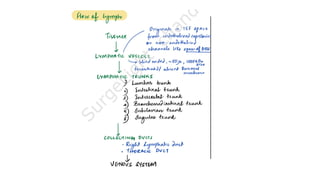 Flow of Lymph
Originate in ISF space
Tissues
from interstitial capsules
or non endothelial
channels like space of Disse
LYMPHATIC VESSELS
Blind ended,
LYMPHATIC TRUNKS
Lumbar trunk
Intestinal trunk
Intercostal trunk
Bronchomediastinal trunk
Subclavian trunk
Jugular trunk
COLLECTING DUCTS
- Right lymphatic duct
- THORACIC DUCT
VENOUS SYSTEM